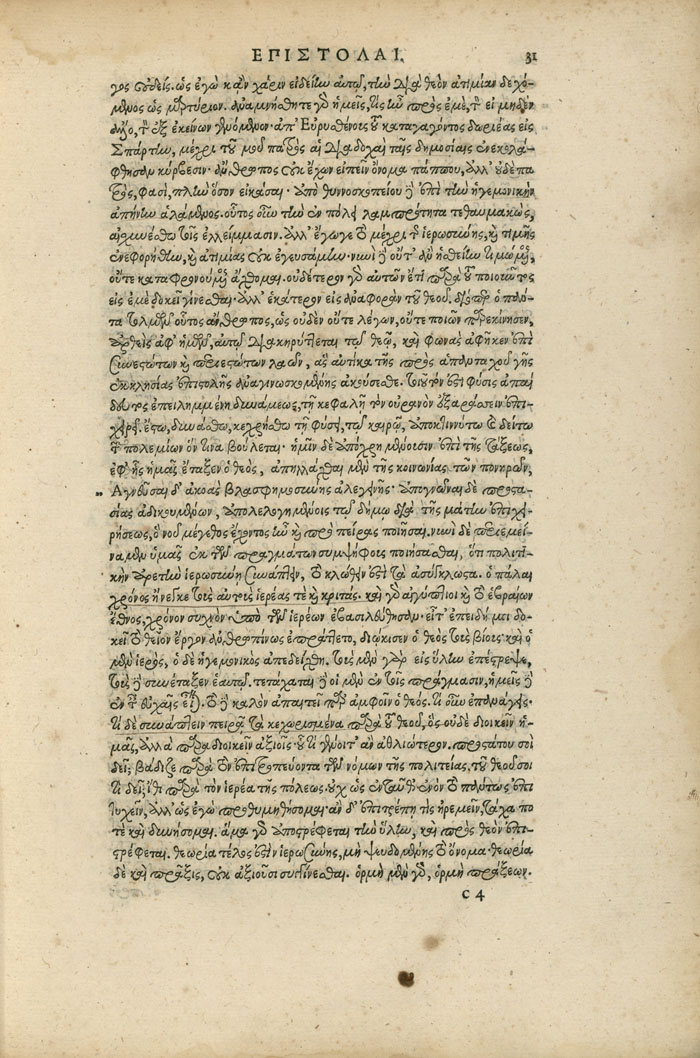 ΕΠΙΣΤΟΛΑΙ. 31
γος οὐδείς. ὡς ἐγὼ κἂν χάριν εἰδείην αὐτῷ, τὴν διὰ θεὸν ἀτιμίαν δεχό-
μενος ὡς μαρτύριον.
Σπάρτην, μέχρι τοῦ μοῦ πατρὸς αἱ διαδοχαὶ ταῖς δημοσίαις ἐνεκολά-
φθησαν κύρβεσιν· ἄνθρωπος οὐκ ἔχων εἰπεῖν ὄνομα πάππου, ἀλλ' οὐδὲ πα
τρὸς, φασὶ, πλὴν ὅσον εἰκάσαι· ἀπὸ θυννοσκοπείου δ' ἐπὶ τὴν ἡγεμονικὴν
ἀπήνην ἁλάμενος. οὗτος οὖν τὴν ἐν πόλει λαμπρότητα τεθαυμακὼς,
αἰσχυνέσθω τοῖς ἐλλείμμασιν. ἀλλ' ἔγωγε τὸ μέχρι τῆς ἱερωσύνης, καὶ τιμῆς
ἐνεφορήθην, καὶ ἀτιμίας οὐκ ἐγευσάμην· νυνὶ δ' οὔτ' ἂν ἡσθείην τιμώμενος,
οὔτε καταφρονούμενος ἄχθομαι. οὐδέτερον γὰρ αὐτῶν ἔτι παρὰ τοῦ ποιοῦντος
εἰς ἐμὲ δοκεῖ γίνεσθαι· ἀλλ' ἑκάτερον εἰς ἀναφορὰν τοῦ θεοῦ. διόπερ ὁ πολ-
τα τολμήσας οὗτος ἄνθρωπος, ὡς οὐδὲν οὔτε λέγων, οὔτε ποιῶν παρεκίνησεν,
ἀρθεὶς ἀφ' ἡμῶν, αὐτῷ διακηρύττεται τῷ θεῷ, καὶ φωνὰς ἀφῆκεν ἐπὶ
συνεστώτων καὶ περιεστώτων λαῶν, ἃς αὐτίκα τῆς πρὸς ἁπανταχοῦ γῆς
ἐκκλησίας ἐπιστολῆς ἀναγινωσκομένης ἀκούσεσθε. τοιοῦτόν ἐστι φύσις ἀπαι
δεύτος ἐπειλημμένη δυνάμεως, τῇ κεφαλῇ τὸν οὐρανὸν ἐξαράσσειν ἐπι-
χειρεῖ. ἔστω, δυνάσθω, κεχρήσθω τῇ φύσει, τῷ καιρῷ, ἀποκτιννύτω καὶ δείτω
τῶν πολεμίων ὅν τινα βούλεται· ἡμῖν δὲ ἀπόχρη μένουσιν ἐπὶ τῆς τάξεως,
ἐφ' ἧς ἡμᾶς ἔταξεν ὁ θεὸς, ἀπηλλάχθαι μὲν τῆς κοινωνίας τῶν πονηρῶν,
Ἁγνεῦσαι δ' ἀκοὰς βλασφημοσύνης ἀλεγεινῆς· ἀπογνῶναι δὲ προστα-
σίας ἀδικουμένων, ἀπολελογημένοις τῷ δήμῳ διὰ τῆς μάτην ἐπιχει-
ρήσεως, ὃ νοῦ μέγεθος ἔχοντος ἦν καὶ πρὸ πείρας ποιῆσαι. νυνὶ δὲ περιέμει-
να μὲν ὑμᾶς ἐκ τῶν πραγμάτων συμψήφους ποιήσασθαι, ὅτι πολιτι-
κὴν ἀρετὴν ἱερωσύνῃ συνάπτειν, τὸ κλώθειν ἐστὶ τὰ ἀσύγκλωστα. ὁ πάλαι
χρόνος ἤνεγκε τοὺς αὐτοὺς ἱερέας τε καὶ κριτάς. καὶ γὰρ αἰγύπτιοι καὶ τὸ ἑβραίων
ἔθνος, χρόνον συχνὸν ὑπὸ τῶν ἱερέων ἐβασιλεύθησαν. εἶτ' ἐπειδή μοι δο-
κεῖ τὸ θεῖον ἔργον ἀνθρωπίνως ἐπράττετο, διῴκισεν ὁ θεὸς τοὺς βίους· καὶ ὁ
μὲν ἱερὸς, ὁ δὲ ἡγεμονικὸς ἀπεδείχθη. τοὺς μὲν γὰρ εἰς ὕλην ἐπέστρεψε,
τοὺς δ' συνέταξεν ἑαυτῷ. τετάχαται δ' οἱ μὲν ἐν τοῖς πράγμασιν, ἡμεῖς δ'
ἐν ταῖς εὐχαῖς εἶναι. τὸ δ' καλὸν ἀπαιτεῖ παρ' ἀμφοῖν ὁ θεός. τί οὖν ἐπανάγεις·
τί δὲ συνάπτειν πειρᾷ τὰ κεχωρισμένα παρὰ τοῦ θεοῦ, ὃς οὐδὲ διοικεῖν ἡ-
μᾶς, ἀλλὰ παραδιοικεῖν ἀξιοῖς· οὗ τί γένοιτ' ἂν ἀθλιώτερον. προστάτου σοὶ
δεῖ; βάδιζε παρὰ τὸν ἐπιτροπεύοντα τῶν νόμων τῆς πολιτείας, τοῦ θεοῦ σοι
τι δεῖ; ἴθι παρὰ τὸν ἱερέα τῆς πόλεως. οὐχ ὡς ἐνταῦθ' ἐνὸν τὸ πάντως ἐπι
τυχεῖν, ἀλλ' ὡς ἐγὼ προθυμηθήσομαι· ἂν δ' ἐπιτρέπῃ τις ἠρεμεῖν, τάχα πο
τὲ καὶ δυνήσομαι. ἅμα γὰρ ἀποστρέφεται τὴν ὕλην, καὶ πρὸς θεὸν ἐπι-
στρέφεται. θεωρία τέλος ἐστὶν ἱερωσύνης, μὴ ψευδομένης τὸ ὄνομα· θεωρία
δὲ καὶ πρᾶξις, οὐκ ἀξιοῦσι συγγίνεσθαι. ὁρμὴ μὲν γὰρ, ὁρμὴ πράξεων.
C 4